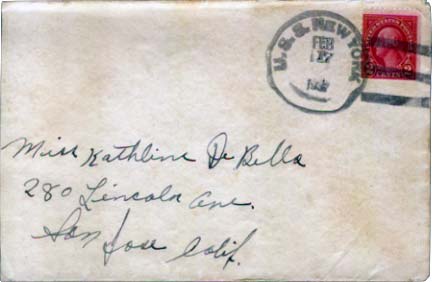 U.S.S. NEW YORK
FEB
27
Miss Kathline De Bella
280 Lincoln Ave.
San Jose Calif.